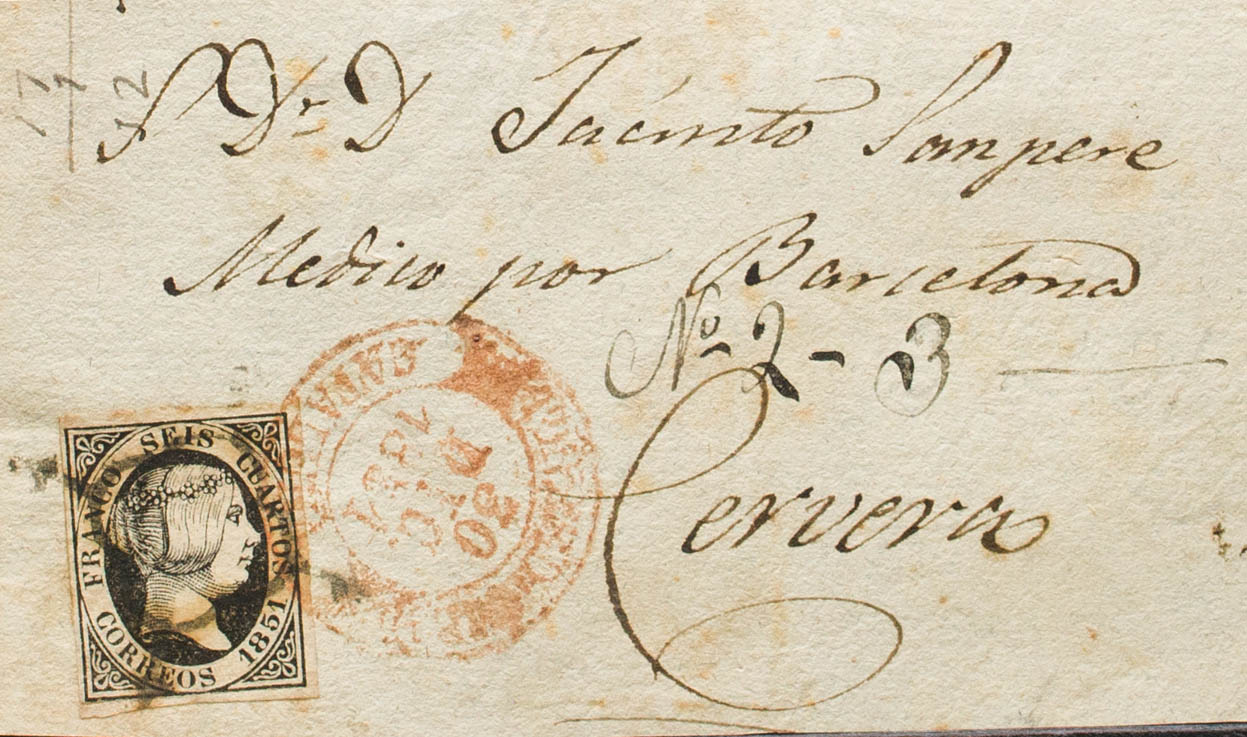 Sr Dr D Jacinto Sanpere
Medico por Barcelona
No 2 - 3
Cervera
FRANCO SEIS CUARTOS
CORREOS 1851
30
DIC
1851
17
42